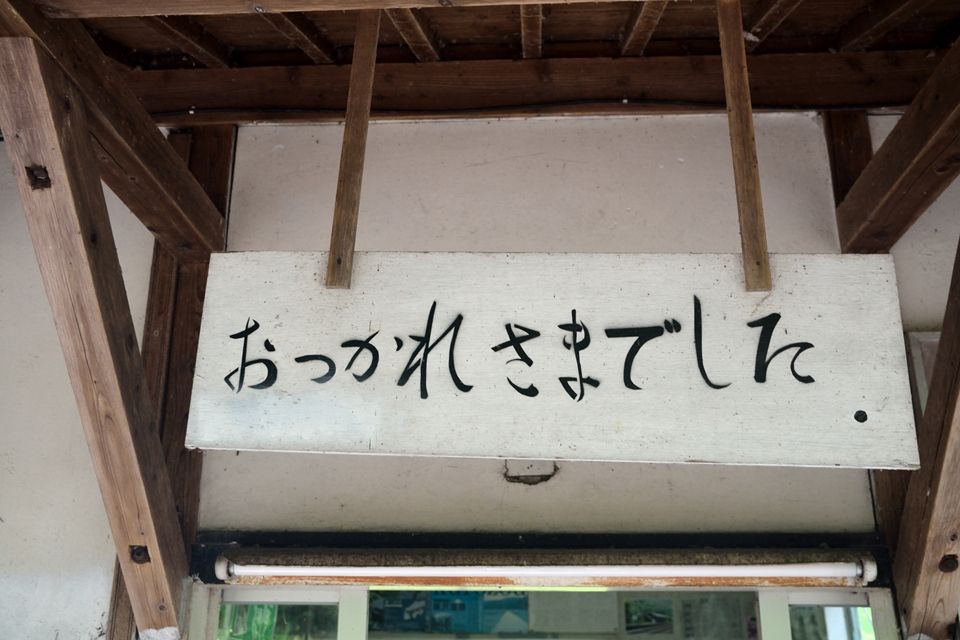 おつかれさまでした.